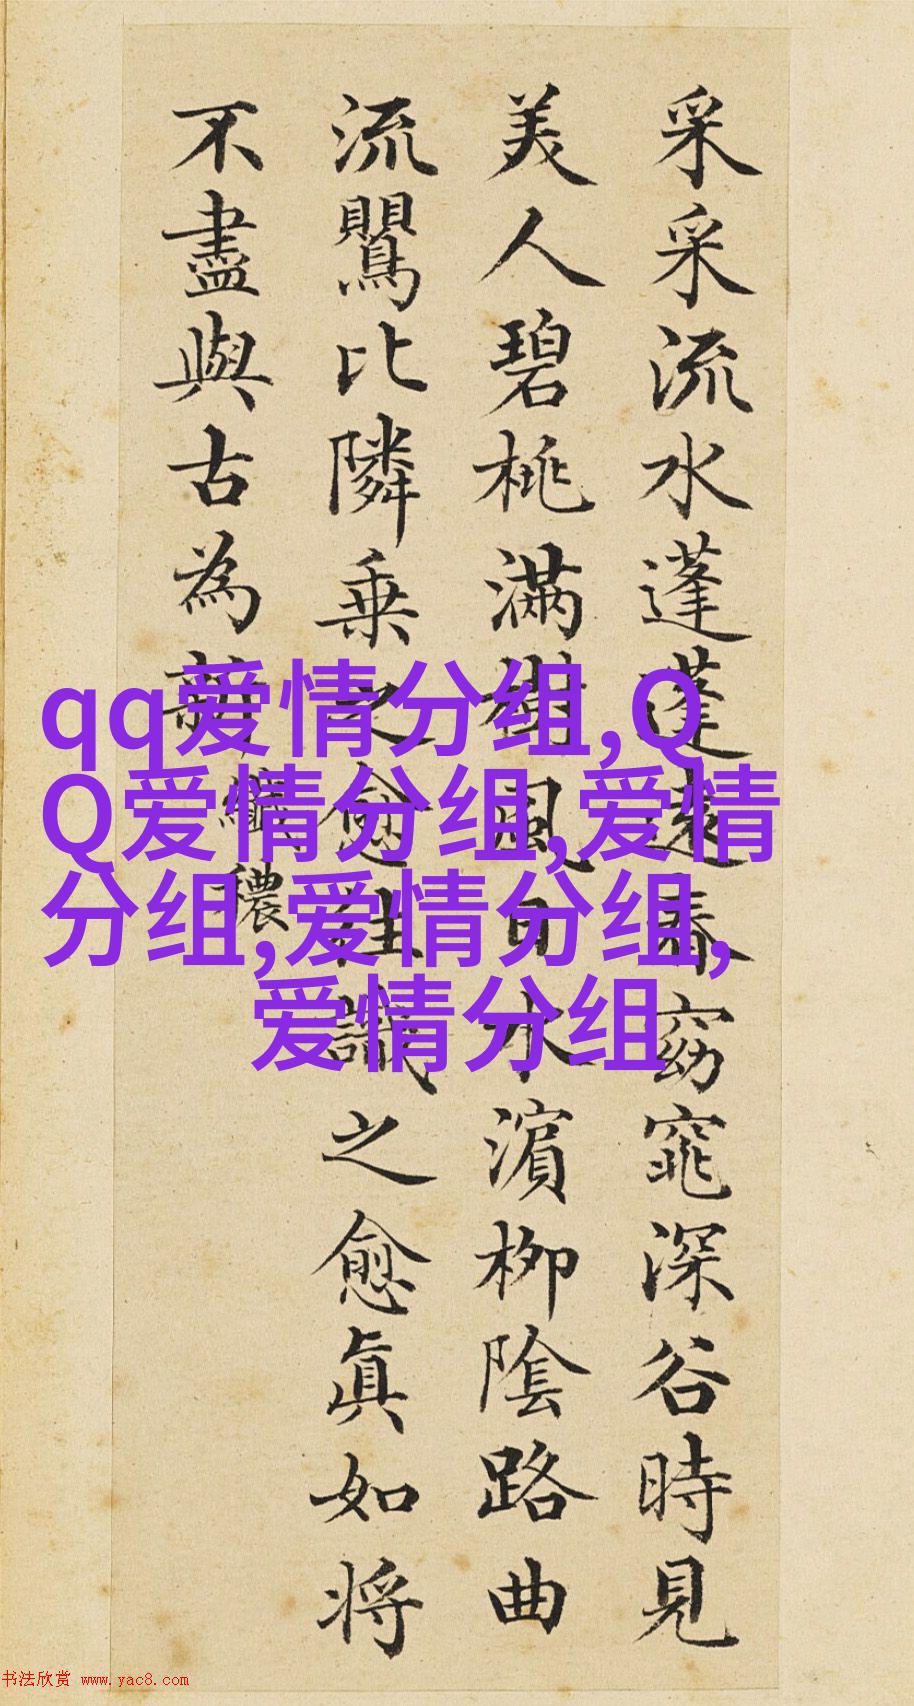 采采流水蓬蓬遠春窈窕深谷時見
美人碧桃滿樹風日水濵柳陰路曲
流鸎比隣乗之愈往識之愈眞如将
不盡與古為新
纖穠
qq爱情分组,Q
Q爱情分组,爱情
分组,爱情分组,
爱情分组
书法欣赏 www.yac8.com